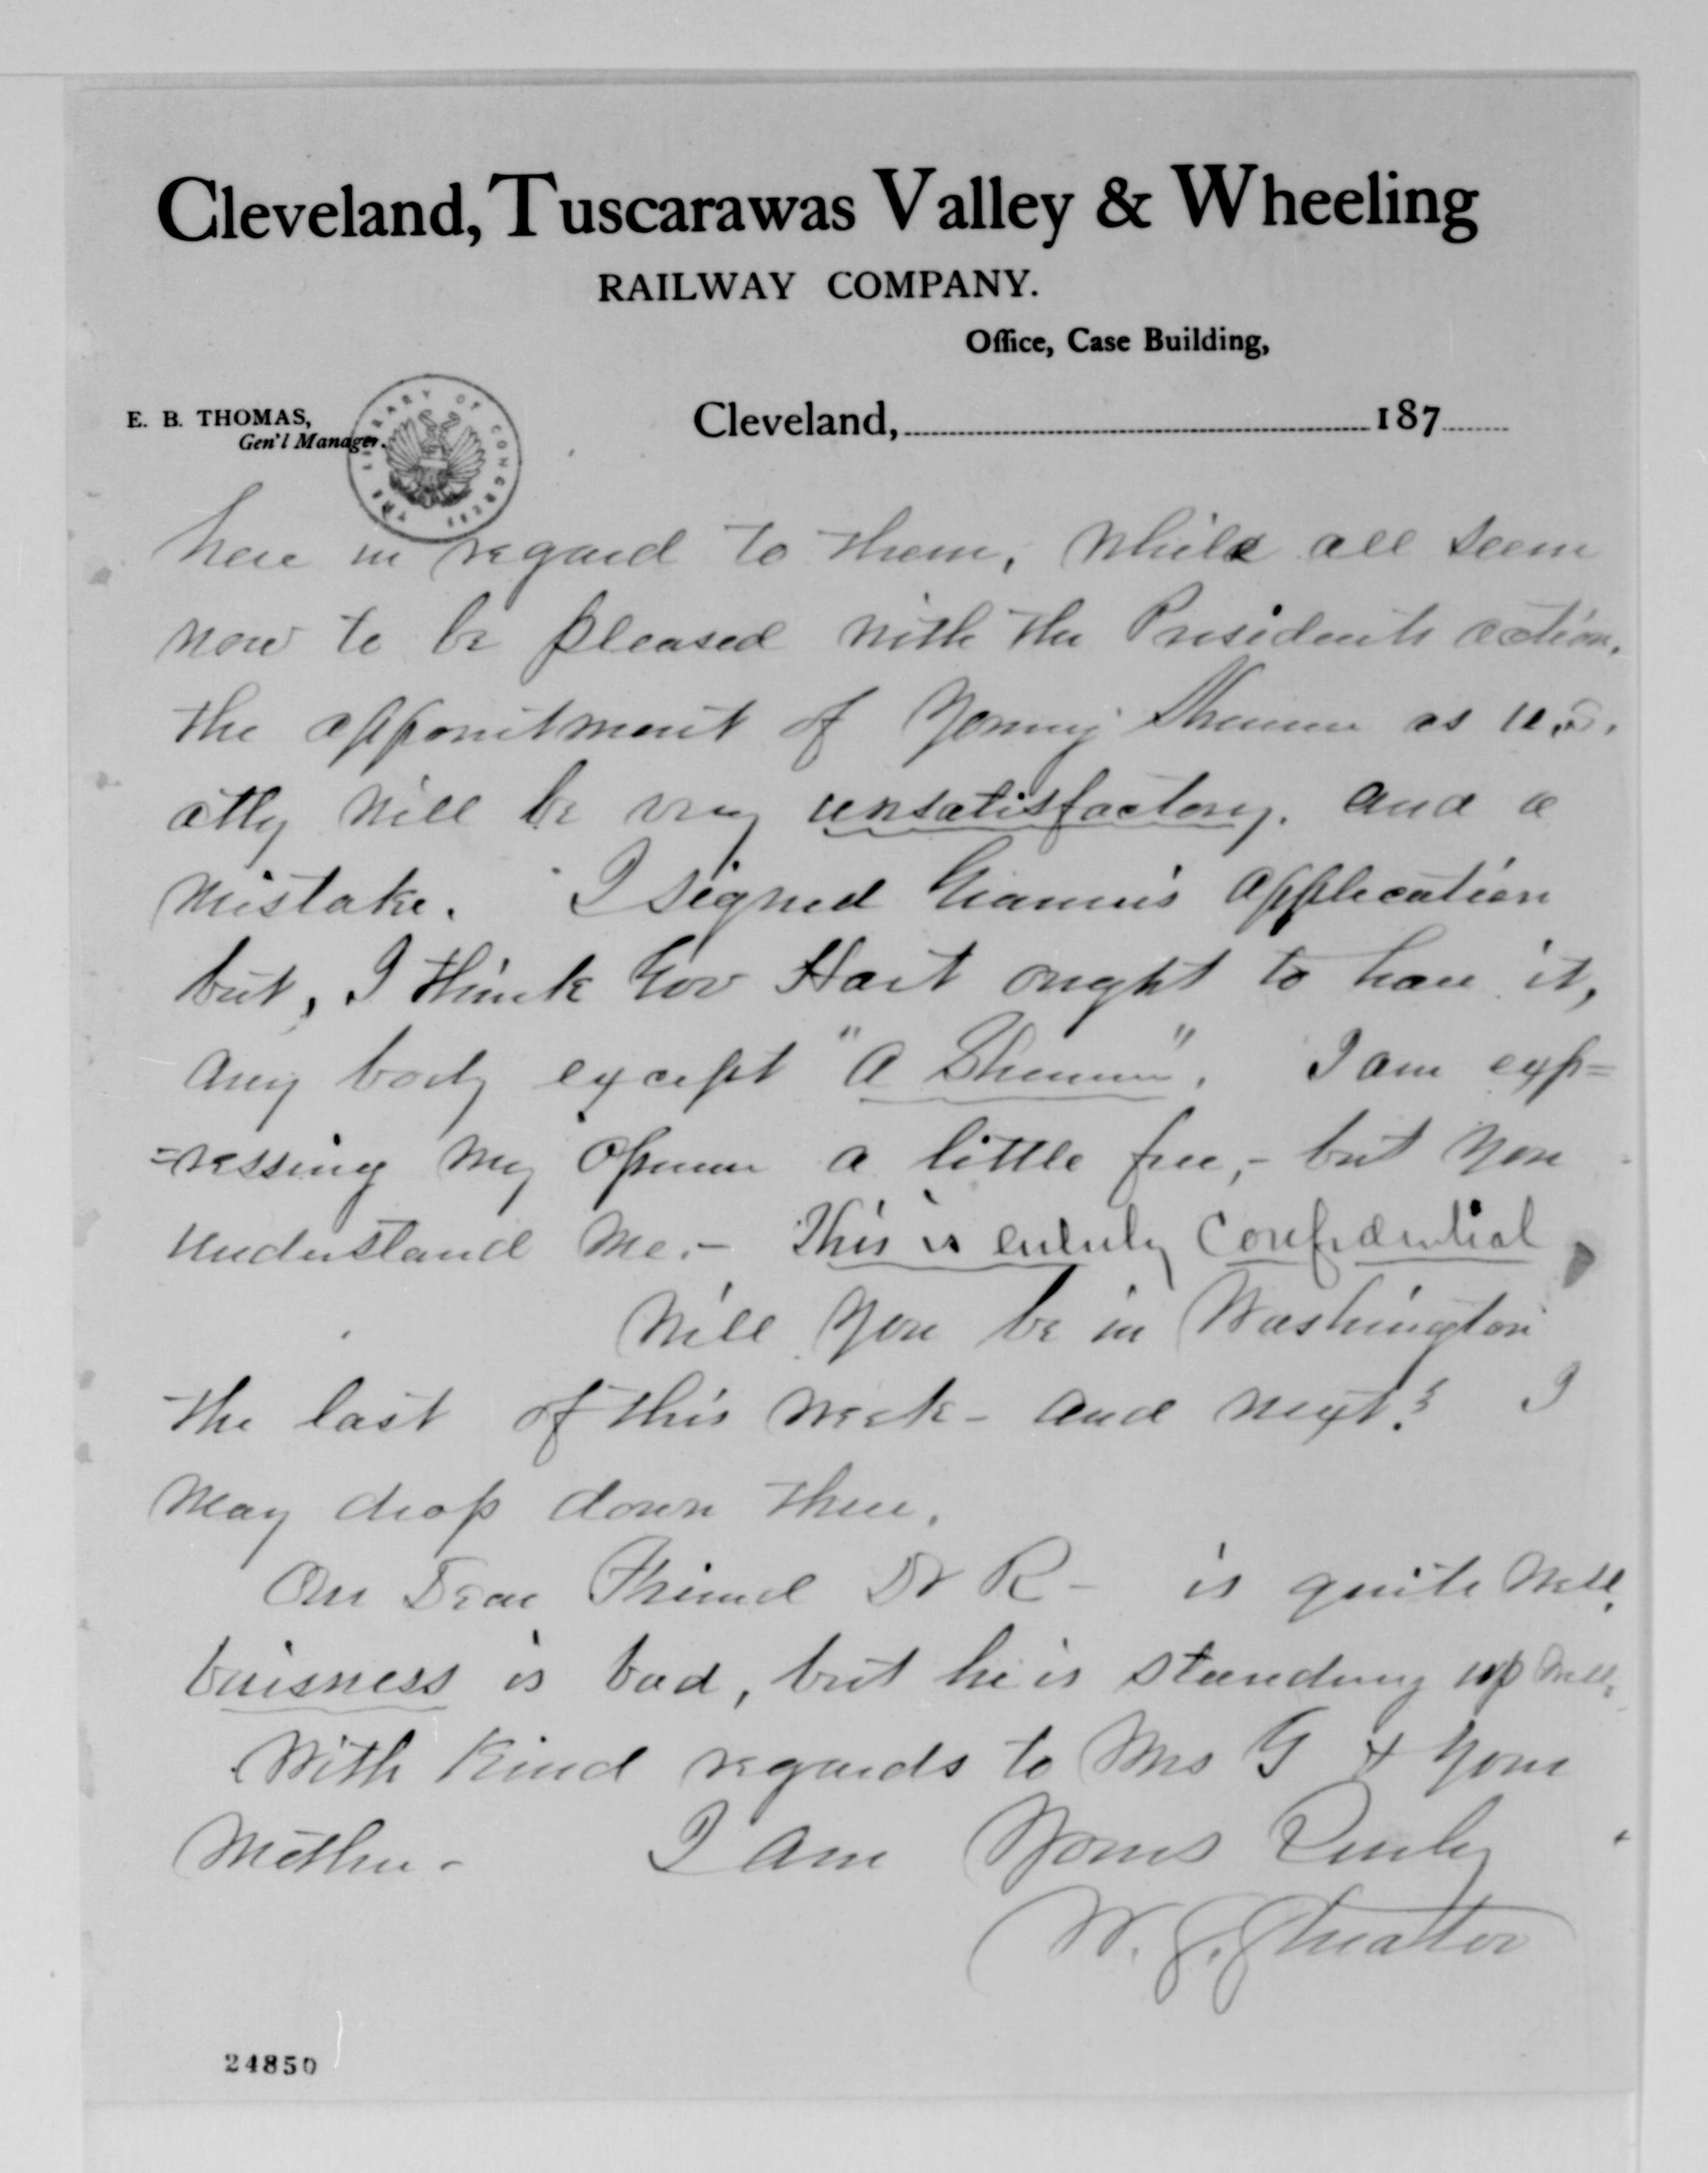 Cleveland, Tuscarawas Valley & Wheeling
RAILWAY COMPANY.
Office, Case Building,
E. B. THOMAS,
Gen'l Manager.
Cleveland, 187
THE LIBRARY OF CONGRESS
here in regard to them, while all seem
now to be pleased with the Presidents action,
the appointment of Young Sherman as U.S.
atty will be very unsatisfactory. and a
mistake. I signed application
but, I think Gov Hart ought to have it,
any body except "a Sherman". I am exp=
=ressing my opinion a little free,- but you
understand me.- This is entirely confidential
Will you be in Washington
the last of this week - and next? I
may drop down there.
Our Dear Friend Dr R - is quite well,
buisness is bad, but he is standing up well,
With kind regards to Mrs G & your
Mother - I am Yours Truly
W. S. Streator
24850